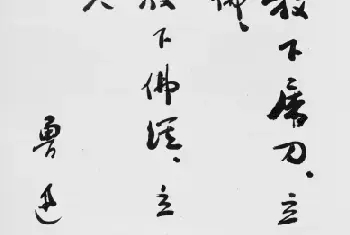 放下屠刀、立
佛、
放下佛經、立
人
魯迅